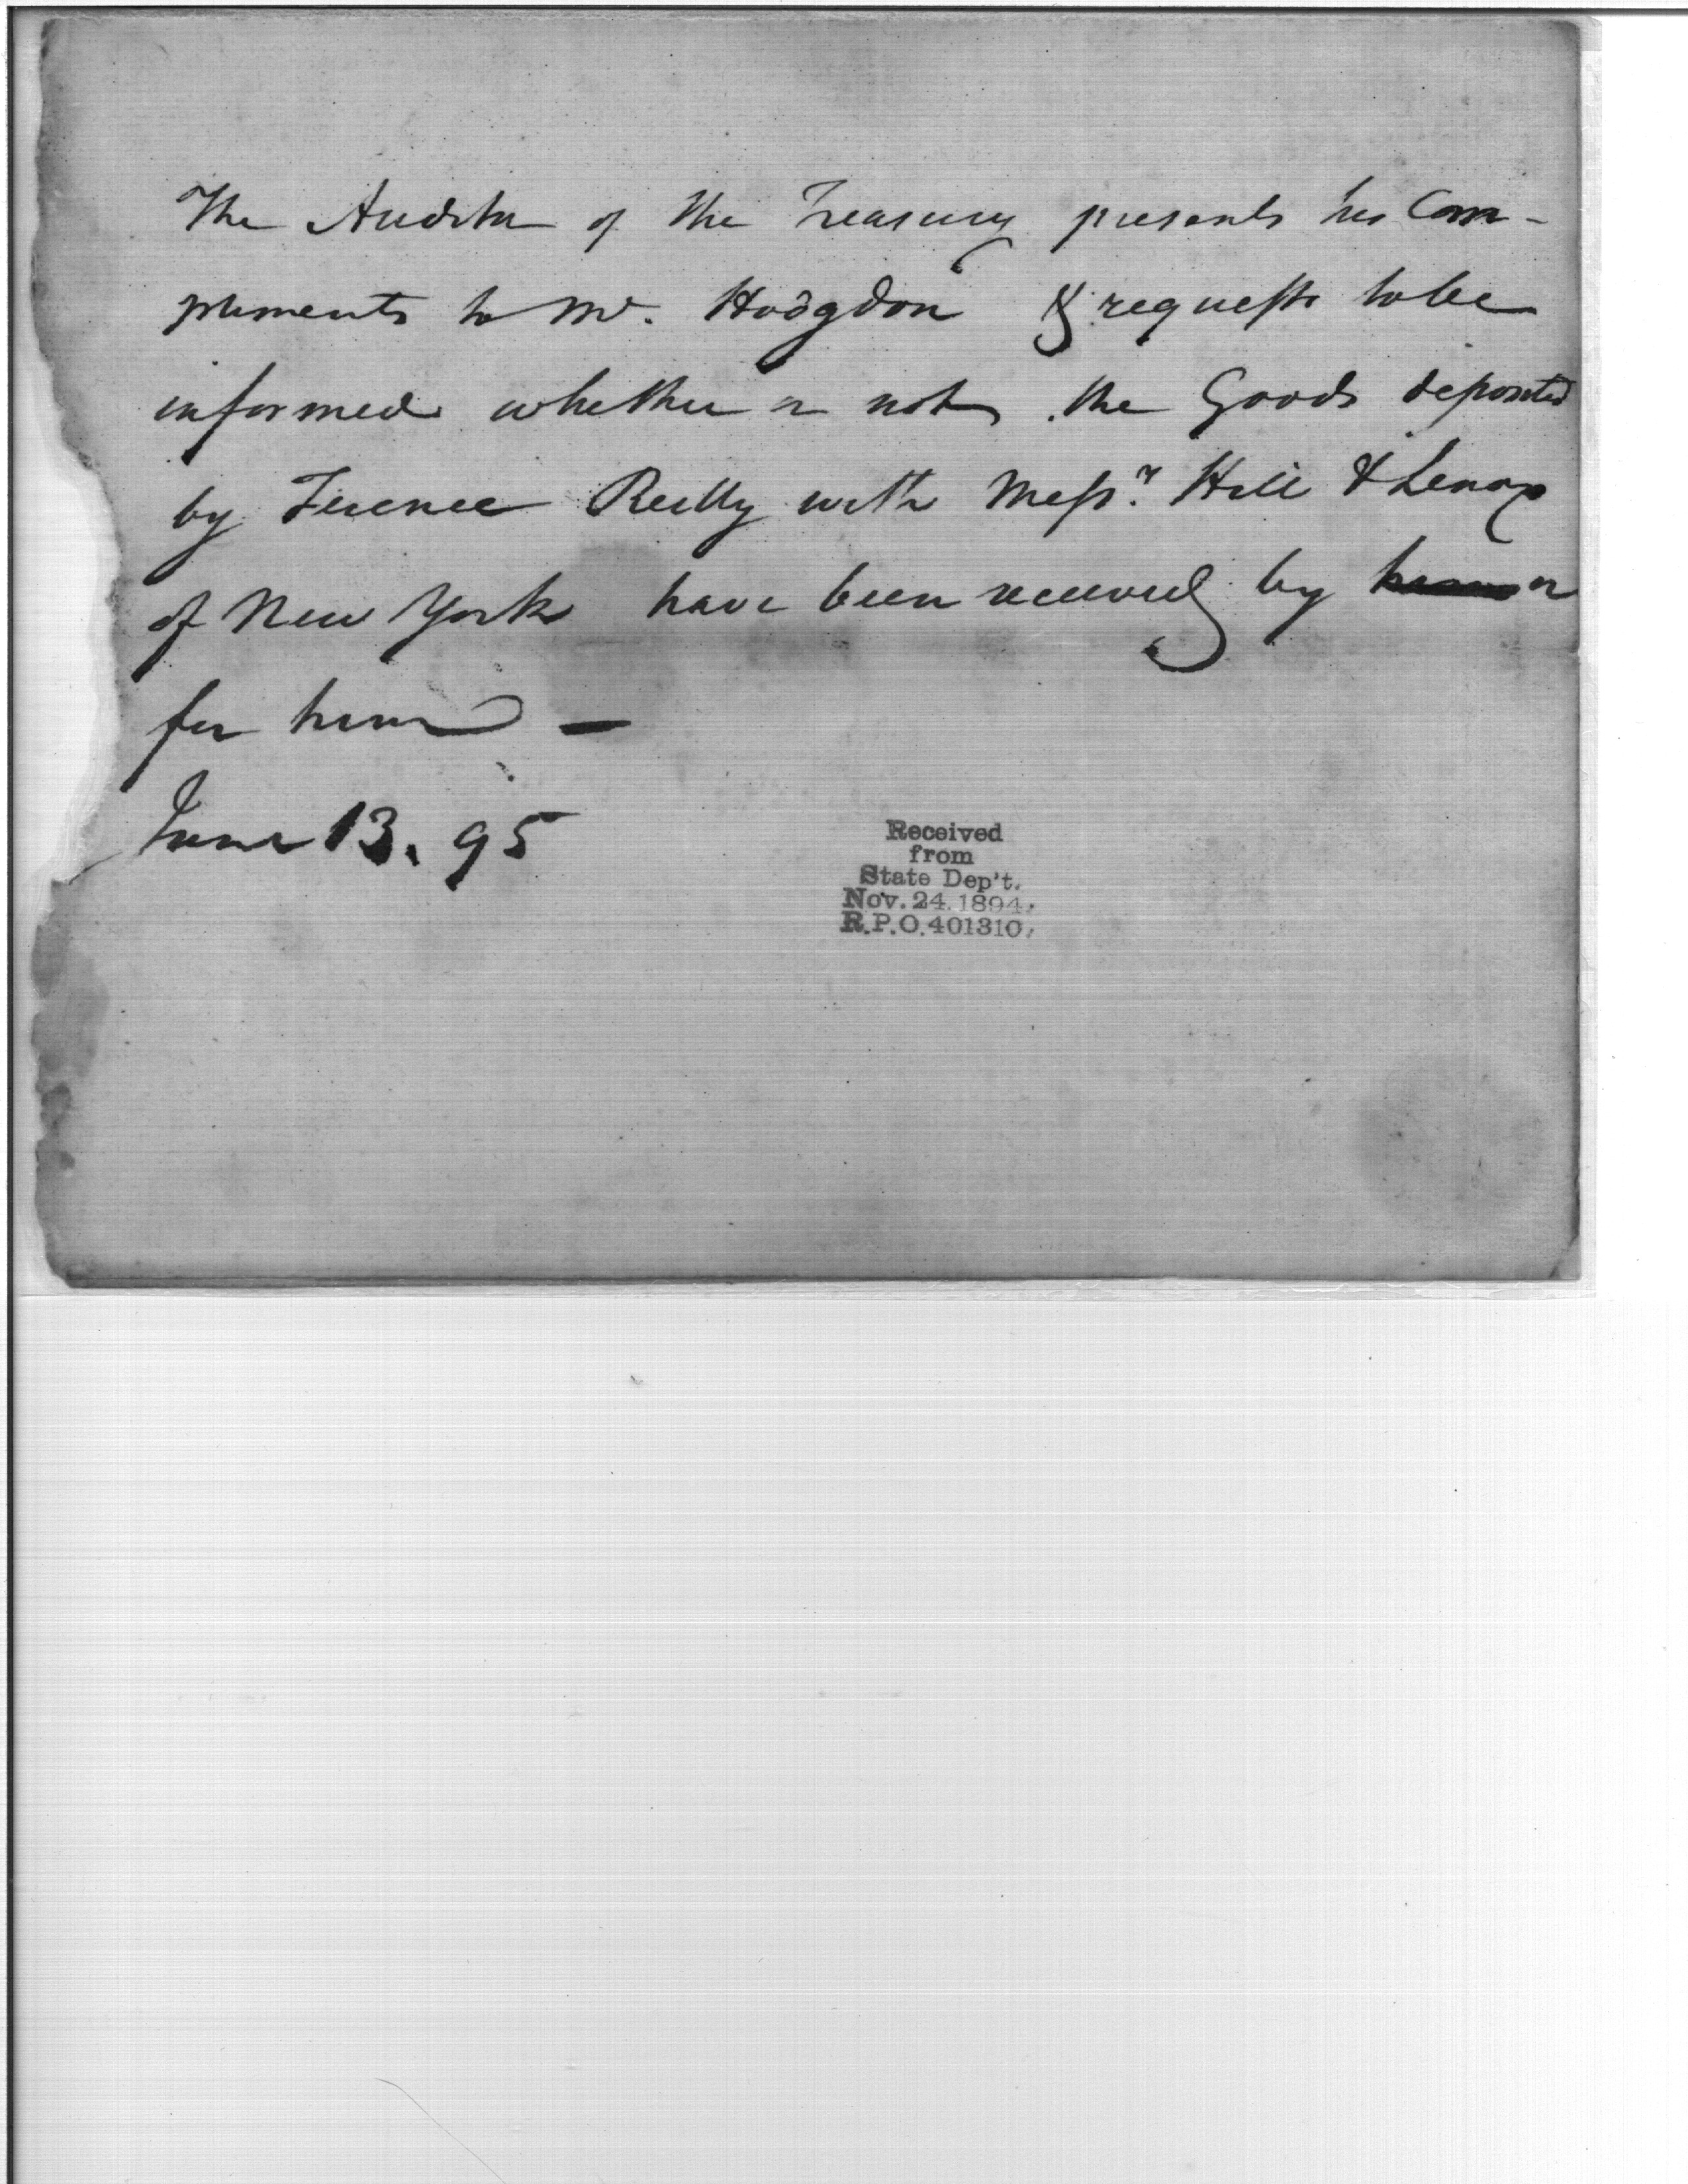 The Auditor of the Treasury presents his Com-
pliments to Mr. Hodgdon & requests to be
informed whether or not the Goods deposited
by Terence Reilly with Messrs. Hill & Lenox
of New York have been received by him or
for him —
June 13. 95
Received
from
State Dep't.
Nov. 24. 1894.
R.P.O. 401310.